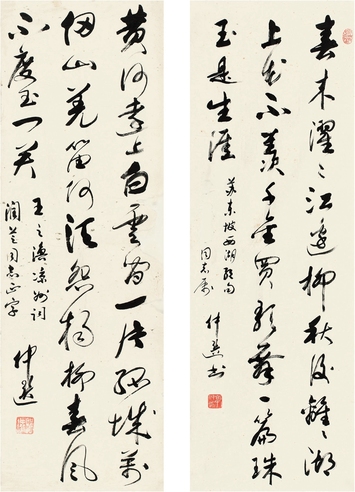 春來濯濯江邊柳秋後離離湖
上花不羨千金買歌舞一篇珠
玉是生涯
蘇東坡西湖絕句
同志属
仲書
黄河遠上白雲間一片孤城萬
仞山羌笛何須怨楊柳春風
不度玉門关
王之渙凉州詞
同志正字
仲